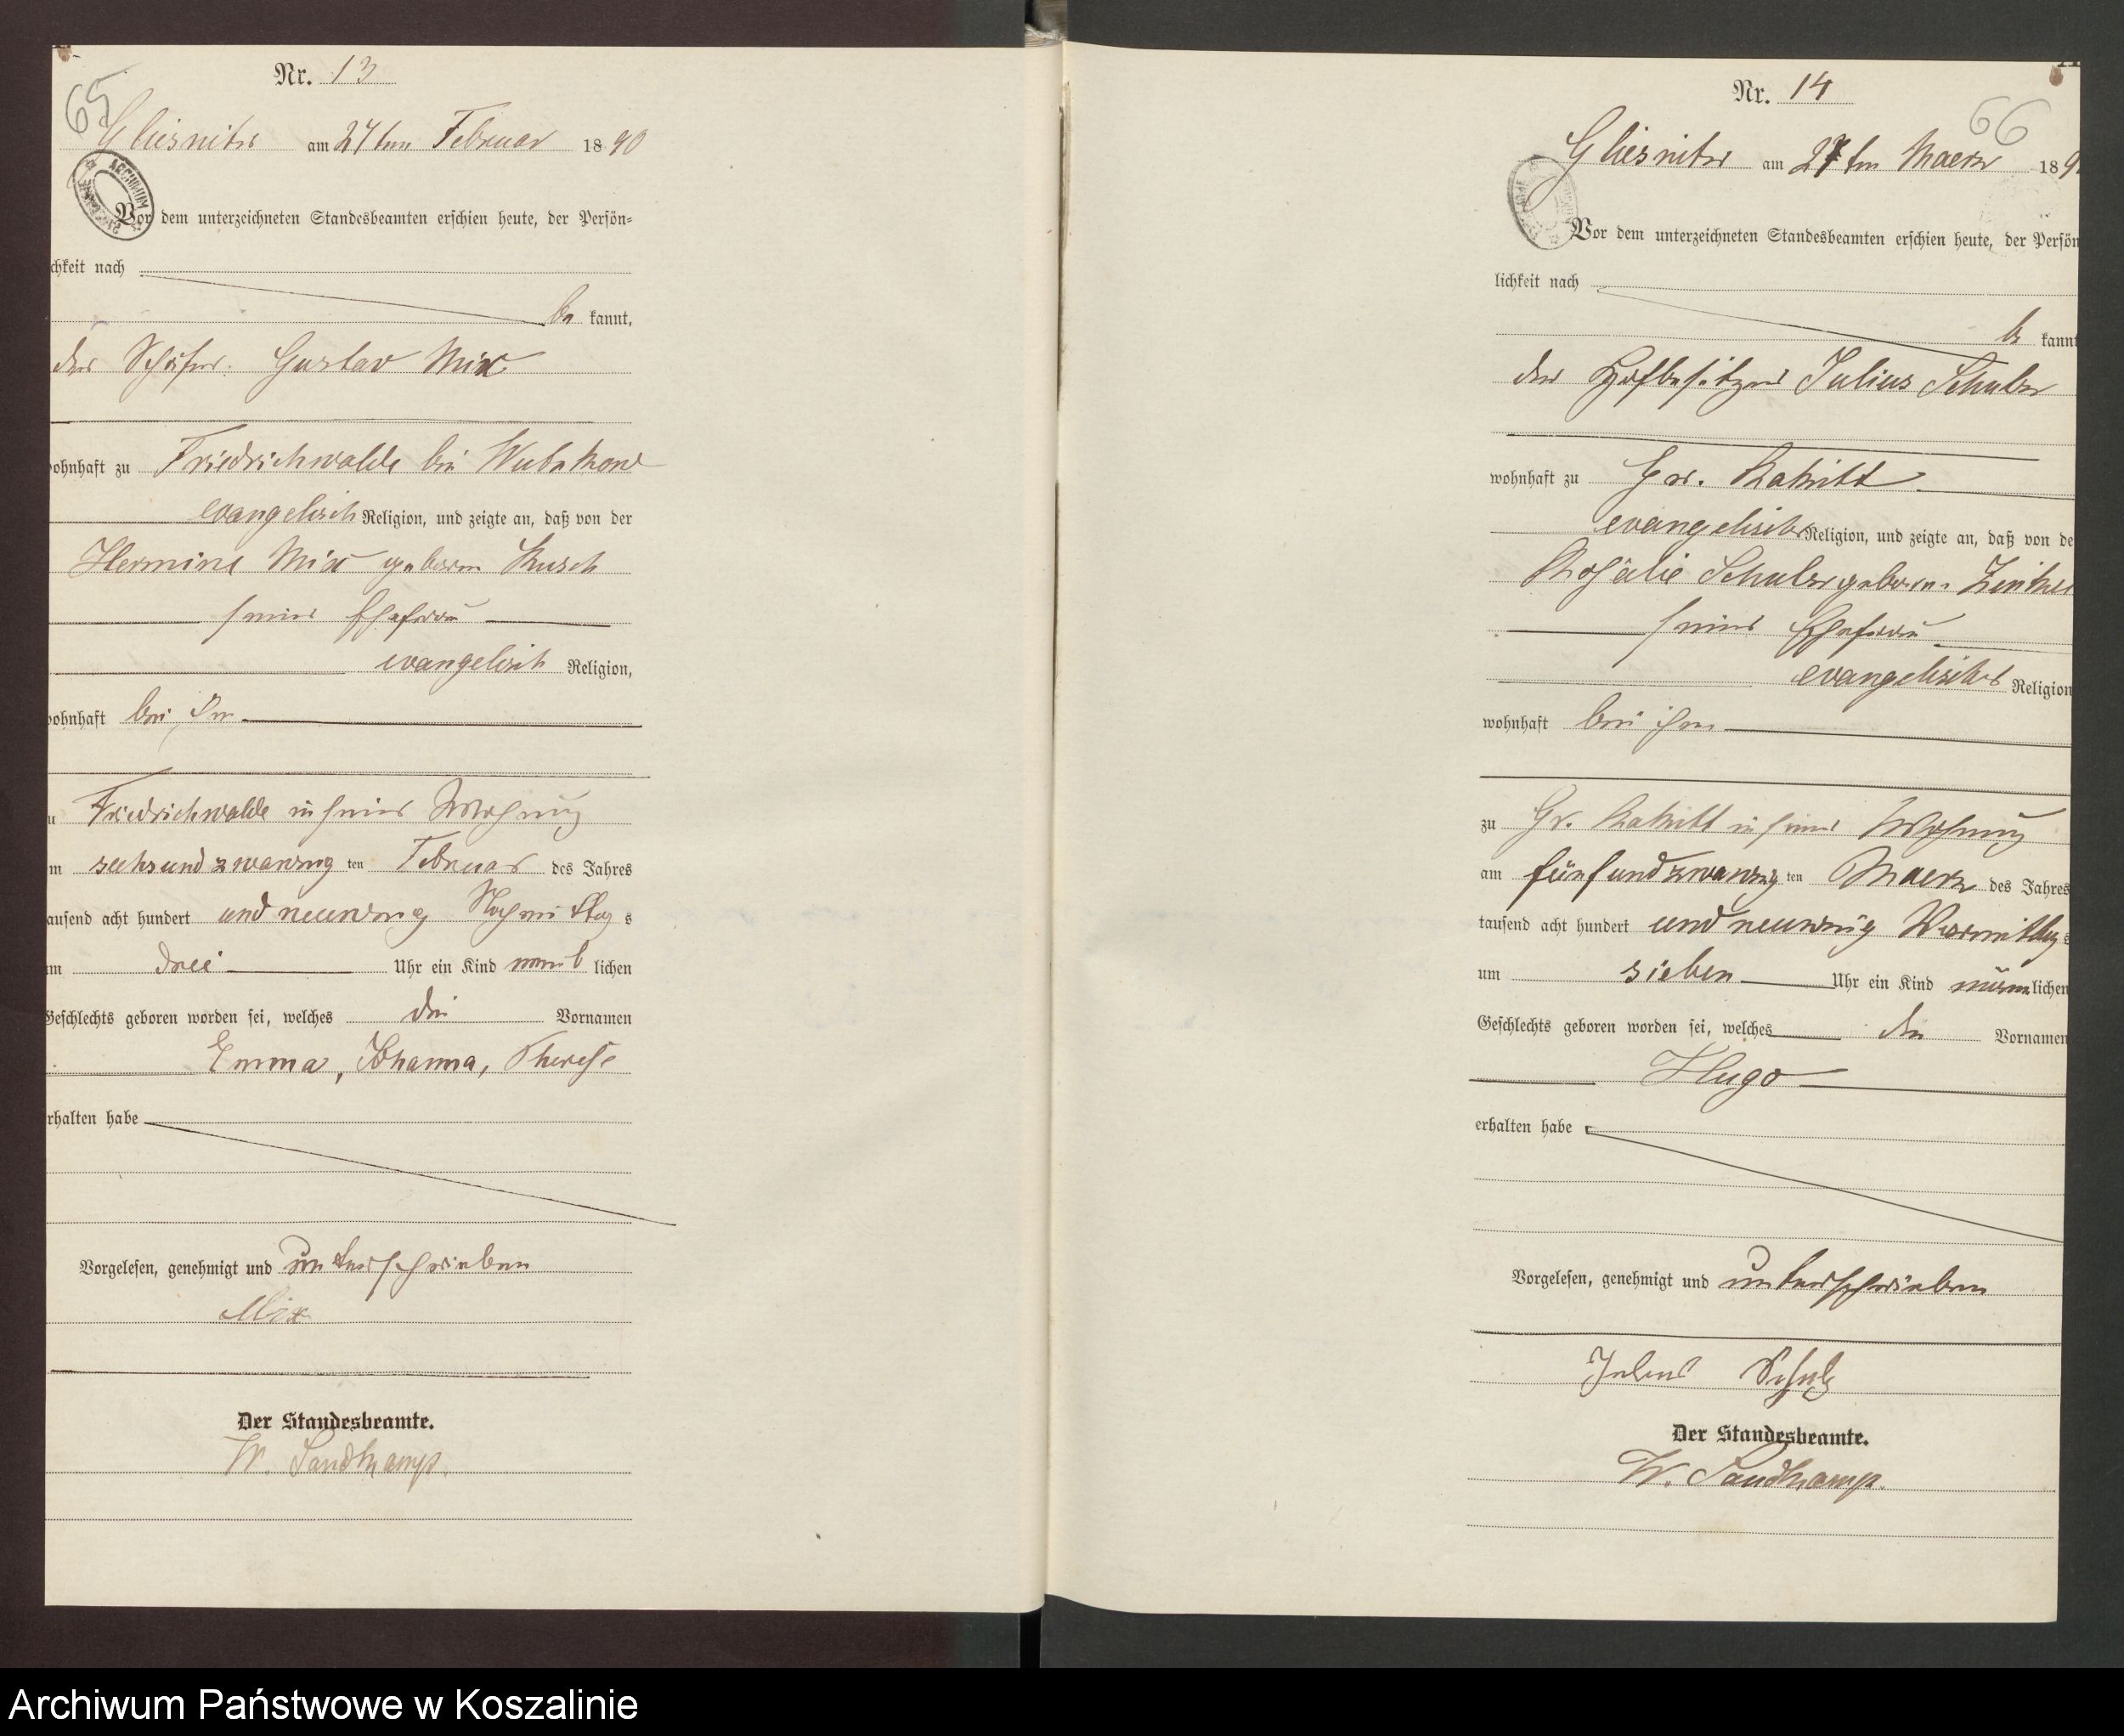 65
Nr. 13
Gliesnitz am 27ten Februar 1890
ARCHIWUM
Vor dem unterzeichneten Standesbeamten erschien heute, der Persön-
chkeit nach
be kannt,
der Schäfer Gustav Mix
ohnhaft zu Friedrichwalde bei
evangelisch Religion, und zeigte an, daß von der
Hermine Mix geboren Kusch
seiner Ehefrau
evangelisch Religion,
ohnhaft bei ihm
u Friedrichwalde in seiner Wohnung
m sechsundzwanzig ten Februar des Jahres
ausend acht hundert und neunzig Nachmittag s
um drei Uhr ein Kind weib lichen
Geschlechts geboren worden sei, welches die Vornamen
Emma, Johanna, Therese
rhalten habe
Vorgelesen, genehmigt und unterschrieben
Mix
Der Standesbeamte.
W. Sandkamp.
66
Nr. 14
Gliesnitz am 27ten Maerz 189
Vor dem unterzeichneten Standesbeamten erschien heute, der Persön
lichkeit nach
be kannt
der Hofbesitzer Julius Schulz
wohnhaft zu Gr. Rakitt
evangelischer Religion, und zeigte an, daß von de
Rosalie Schulz geboren
seiner Ehefrau
evangelischer Religion
wohnhaft bei ihm
zu Gr. Rakitt in seiner Wohnung
am fünfundzwanzig ten Maerz des Jahres
tausend acht hundert und neunzig Vormittag s
um sieben Uhr ein Kind männlichen
Geschlechts geboren worden sei, welches den Vornamen
Hugo
erhalten habe
Vorgelesen, genehmigt und unterschrieben
Julius Schulz
Der Standesbeamte.
W. Sandkamp.
Archiwum Państwowe w Koszalinie